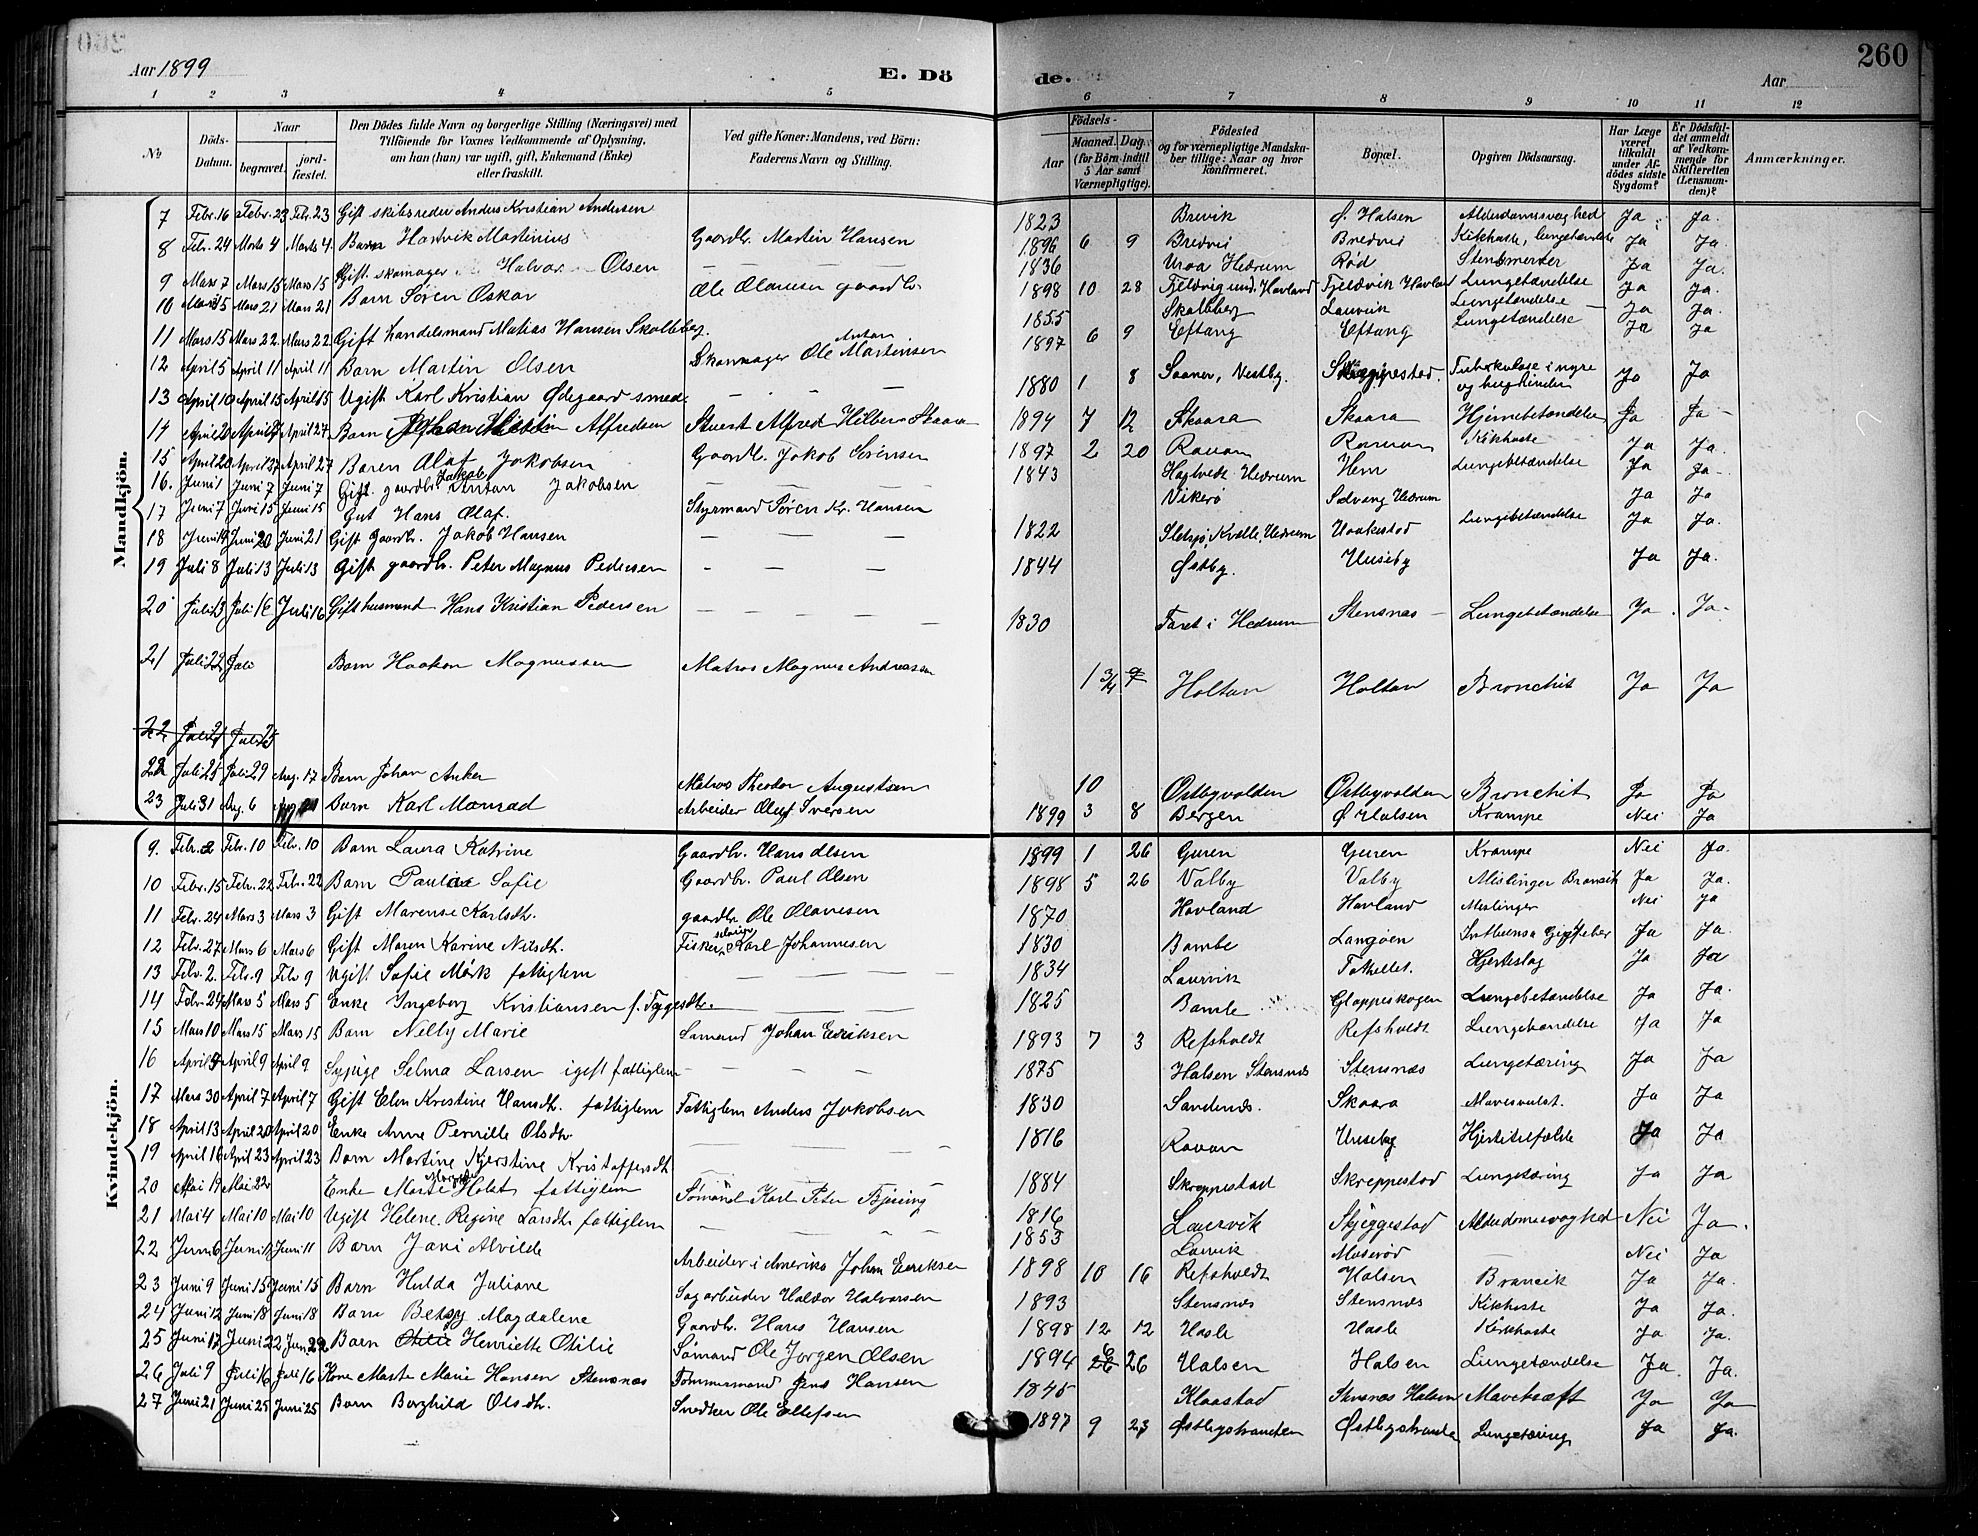 Aar 1899 E. Dö de. Aar 260
1 2 3 4 5 6 7 8 9 10 11 12
No
Döds-Datum.
Naar
begravet. jord-fæstet.
Den Dödes fulde Navn og borgerlige Stilling (Næringsvei) med
Tilföiende for Voxnes Vedkommende af Oplysning,
om han (hun) var ugift, gift, Enkemand (Enke)
eller fraskilt.
Ved gifte Koner: Mandens, ved Börn:
Faderens Navn og Stilling.
Födsels-
Aar Maaned. Dag.
(for Börn indtil 5 Aar samt Værnepligtige).
Födested
og for værnepligtige Mandska-
ber tillige: Naar og hvor
konfirmeret.
Bopæl.
Opgiven Dödsaarsag.
Har Læge været tilkaldt under Af-dödes sidste Sygdom?
Er Dödsfal-det anmeldt af Vedkom-mende for Skifteretten (Lensman-den)?
Anmærkninger.
Mandkjön.
7 Febr. 16 Febr. 23 Febr. 23 Gift skibsreder Anders Kristian Andersen 1823 Brevik Ø. Halsen Alderdomssvaghed Ja Ja.
8 Febr. 24 Marts 4 Marts 4 Barn Hartvik Martinius Gaardbr. Martin Hansen 1896 6 9 Bredvei Bredvei Kikhoste, Lungetændelse Ja Ja
9 Mars 7 Mars 15 Mars 15 Gift skomager Halvor Olsen 1836 Hedrum Rød Ja Ja.
10 Mars 15 Mars 21 Mars 21 Barn Søren Oskar Ole Olausen gaardbr. 1898 10 28 Fjeldvig und. Havland Fjeldvik Havland Lungetændelse Ja Ja.
11 Mars 15 Mars 22 Mars 22 Gift handelsmand Matias Hansen Skalleberg. 1855 Skalleberg Laurvik Lungetændelse Ja Ja.
12 April 5 April 11 April 11 Barn Martin Olsen Skomager Ole Anton Martinsen 1897 6 9 Eftang Eftang Lungetændelse Ja Ja
13 April 10 April 15 April 15 Ugift Karl Kristian Ødegaard smed 1880 1 8 Saaner, Vestby. Skreppestad. Tuberkulose i nyre og bughinden Ja Ja
14 April 20 April 27 April 27 Barn Alfredsen Stuert Alfred Hilbert Skaara 1894 7 12 Skaara Skaara Hjernebetændelse Ja Ja
15 April 20 April 27 April 27 Barn Olaf Jakobsen Gaardbr. Jakob Sørensen 1897 2 20 Rauan Rauan Kikhoste Ja Ja.
16. Juni 1 Juni 7 Juni 7 Gift. gaardbr. Jakob Anton Jakobsen 1843 Hagtvedt Hedrum Hem Lungebetændelse Ja Ja
17 Juni 7 Juni 15 Juni 15 Gut Hans Olaf. Styrmand Søren Kr. Hansen Vikerø Sdvang Hedrum Ja Ja
18 Juni 20 Juni 21 Gift Gaardbr. Jakob Hansen 1822 Kvelle, Hedrum Haakestad Lungebetændelse Ja Ja.
19 Juli 8 Juli 13 Juli 13 Gift gaardbr. Peter Magnus Pedersen 1844 Østby. Huseby Ja Ja.
20 Juli 13 Juli 16 Juli 16 Gift husmand Hans Kristian Pedersen 1830 Faret i Hedrum Stensnæs Lungebetændelse Ja Ja
21 Juli 22 Juli Barn Haakon Magnussen Matros Magnus Andreassen 1 3/4 9 Holtan Holtan Bronchit Ja Ja
22 Juli 21 Juli 25
22 Juli 25 Juli 29 Aug. 17 Barn Johan Anker Matros Theodor Augustsen 10 Østbyvolden Østbyvolden Bronchit Ja Ja
23 Juli 31 Aug. 6 Barn Karl Monrad Arbeider Oluf Iversen 1899 3 8 Bergen Ø Halsen Krampe Nei Ja
Kvindekjön.
9. Febr. 2 Febr. 10 Febr. 10 Barn Laura Katrine Gaardbr. Hans Olsen 1899 1 26 Guren Guren Krampe Nei Ja.
10 Febr. 15 Febr. 22 Febr. 22 Barn Pauline Sofie Gaardbr. Paul Olsen 1898 5 26 Valby Valby Mislinger Bronsik Ja Ja.
11 Febr. 24 Mars 3 Mars 3 Gift Marense Karlsdtr. gaardbr Ole Olavesen 1870 Havland Havland Meslinger Nei Ja
12 Febr. 27 Mars 6 Mars 6 Gift Maren Karine Nilsdtr. Fisker selveier Karl Johannesen 1830 Bamble Langøen Ja Ja.
13 Febr. 2. Febr. 9 Febr. 9 Ugift Sofie Mørk fattiglem 1834 Laurvik Hjerteslag Ja Ja
14 Febr. 24 Mars 5 Mars 5 Enke Ingeborg Kristiansen f. Tyggesdtr. 1825 Bamle Gloppeskogen Lungebetændelse Ja Ja.
15 Mars 10 Mars 15 Mars 15 Barn Nelly Marie Sømand Johan Eriksen 1893 7 3 Refsholdt Refsholdt Lungetændelse Ja Ja
16 April 4 April 9 April 9 Sypige Selma Larsen igift fattiglem 1875 Halsen Stensnæs Stensnæs Lungetæring Ja Ja
17 Mars 30 April 7 April 7 Gift Elen Kristine Hansdtr. fattiglem Fattiglem Anders Jakobsen 1830 Sandenæs. Skaara Mavesvulst. Ja Ja
18 April 13 April 20 April 20 Enke Anne Pernille Olsdtr. 1816 Rauan Huseby Hjertetilfælde Ja Ja
19 April 16 April 23 April 23 Barn Martine Kjerstine Kristoffersdtr. 1884 Skreppestad Skreppestad Lungetæring Ja Ja
20 Mai 19 Mai 22 Enke Marte Holst fattiglem Sømand Karl Peter Bjering 1816 Laurvik Skjeggestad Alderdomssvaghed Nei Ja.
21 Mai 4 Mai 10 Mai 10 Ugift Helene Regine Larsdtr. fattiglem 1853 Larvik Moserød Nei Ja
22 Juni 6 Juni 11 Juni 11 Barn Jani Alvilde Arbeider i Amerika Johan Eriksen 1898 10 16 Refsholdt Halsen Bronsik Ja Ja.
23 Juni 9 Juni 15 Juni 15 Barn Hulda Juliane Sagarbeider Haldor Halvorsen 1893 Stensnæs Stensnæs Kikhoste Ja Ja.
24 Juni 12 Juni 18 Juni 18 Barn Betsy Magdalene Gaardbr. Hans Hansen 1898 12 12 Hasle Hasle Kikhoste Ja Ja.
25 Juni 17 Juni 22 Juni 22 Barn Otilie Henriette Otilie Sømand Ole Jørgen Olsen 1894 26 Halsen Halsen Lungetændelse Ja. Ja.
26 Juli 9 Juli 16 Juli 16 Kone Marte Marie Hansen Stensnæs Tømmermand Jens Hansen 1845 Klaastad Stensnæs Halsen Mavekræft Ja Ja
27 Juni 21 Juni 25 Juni 25 Barn Borghild Olsdtr. Snedker Ole Ellefsen 1897 9 23 Østbystranden Østbystranda Lungetæring Ja Ja.